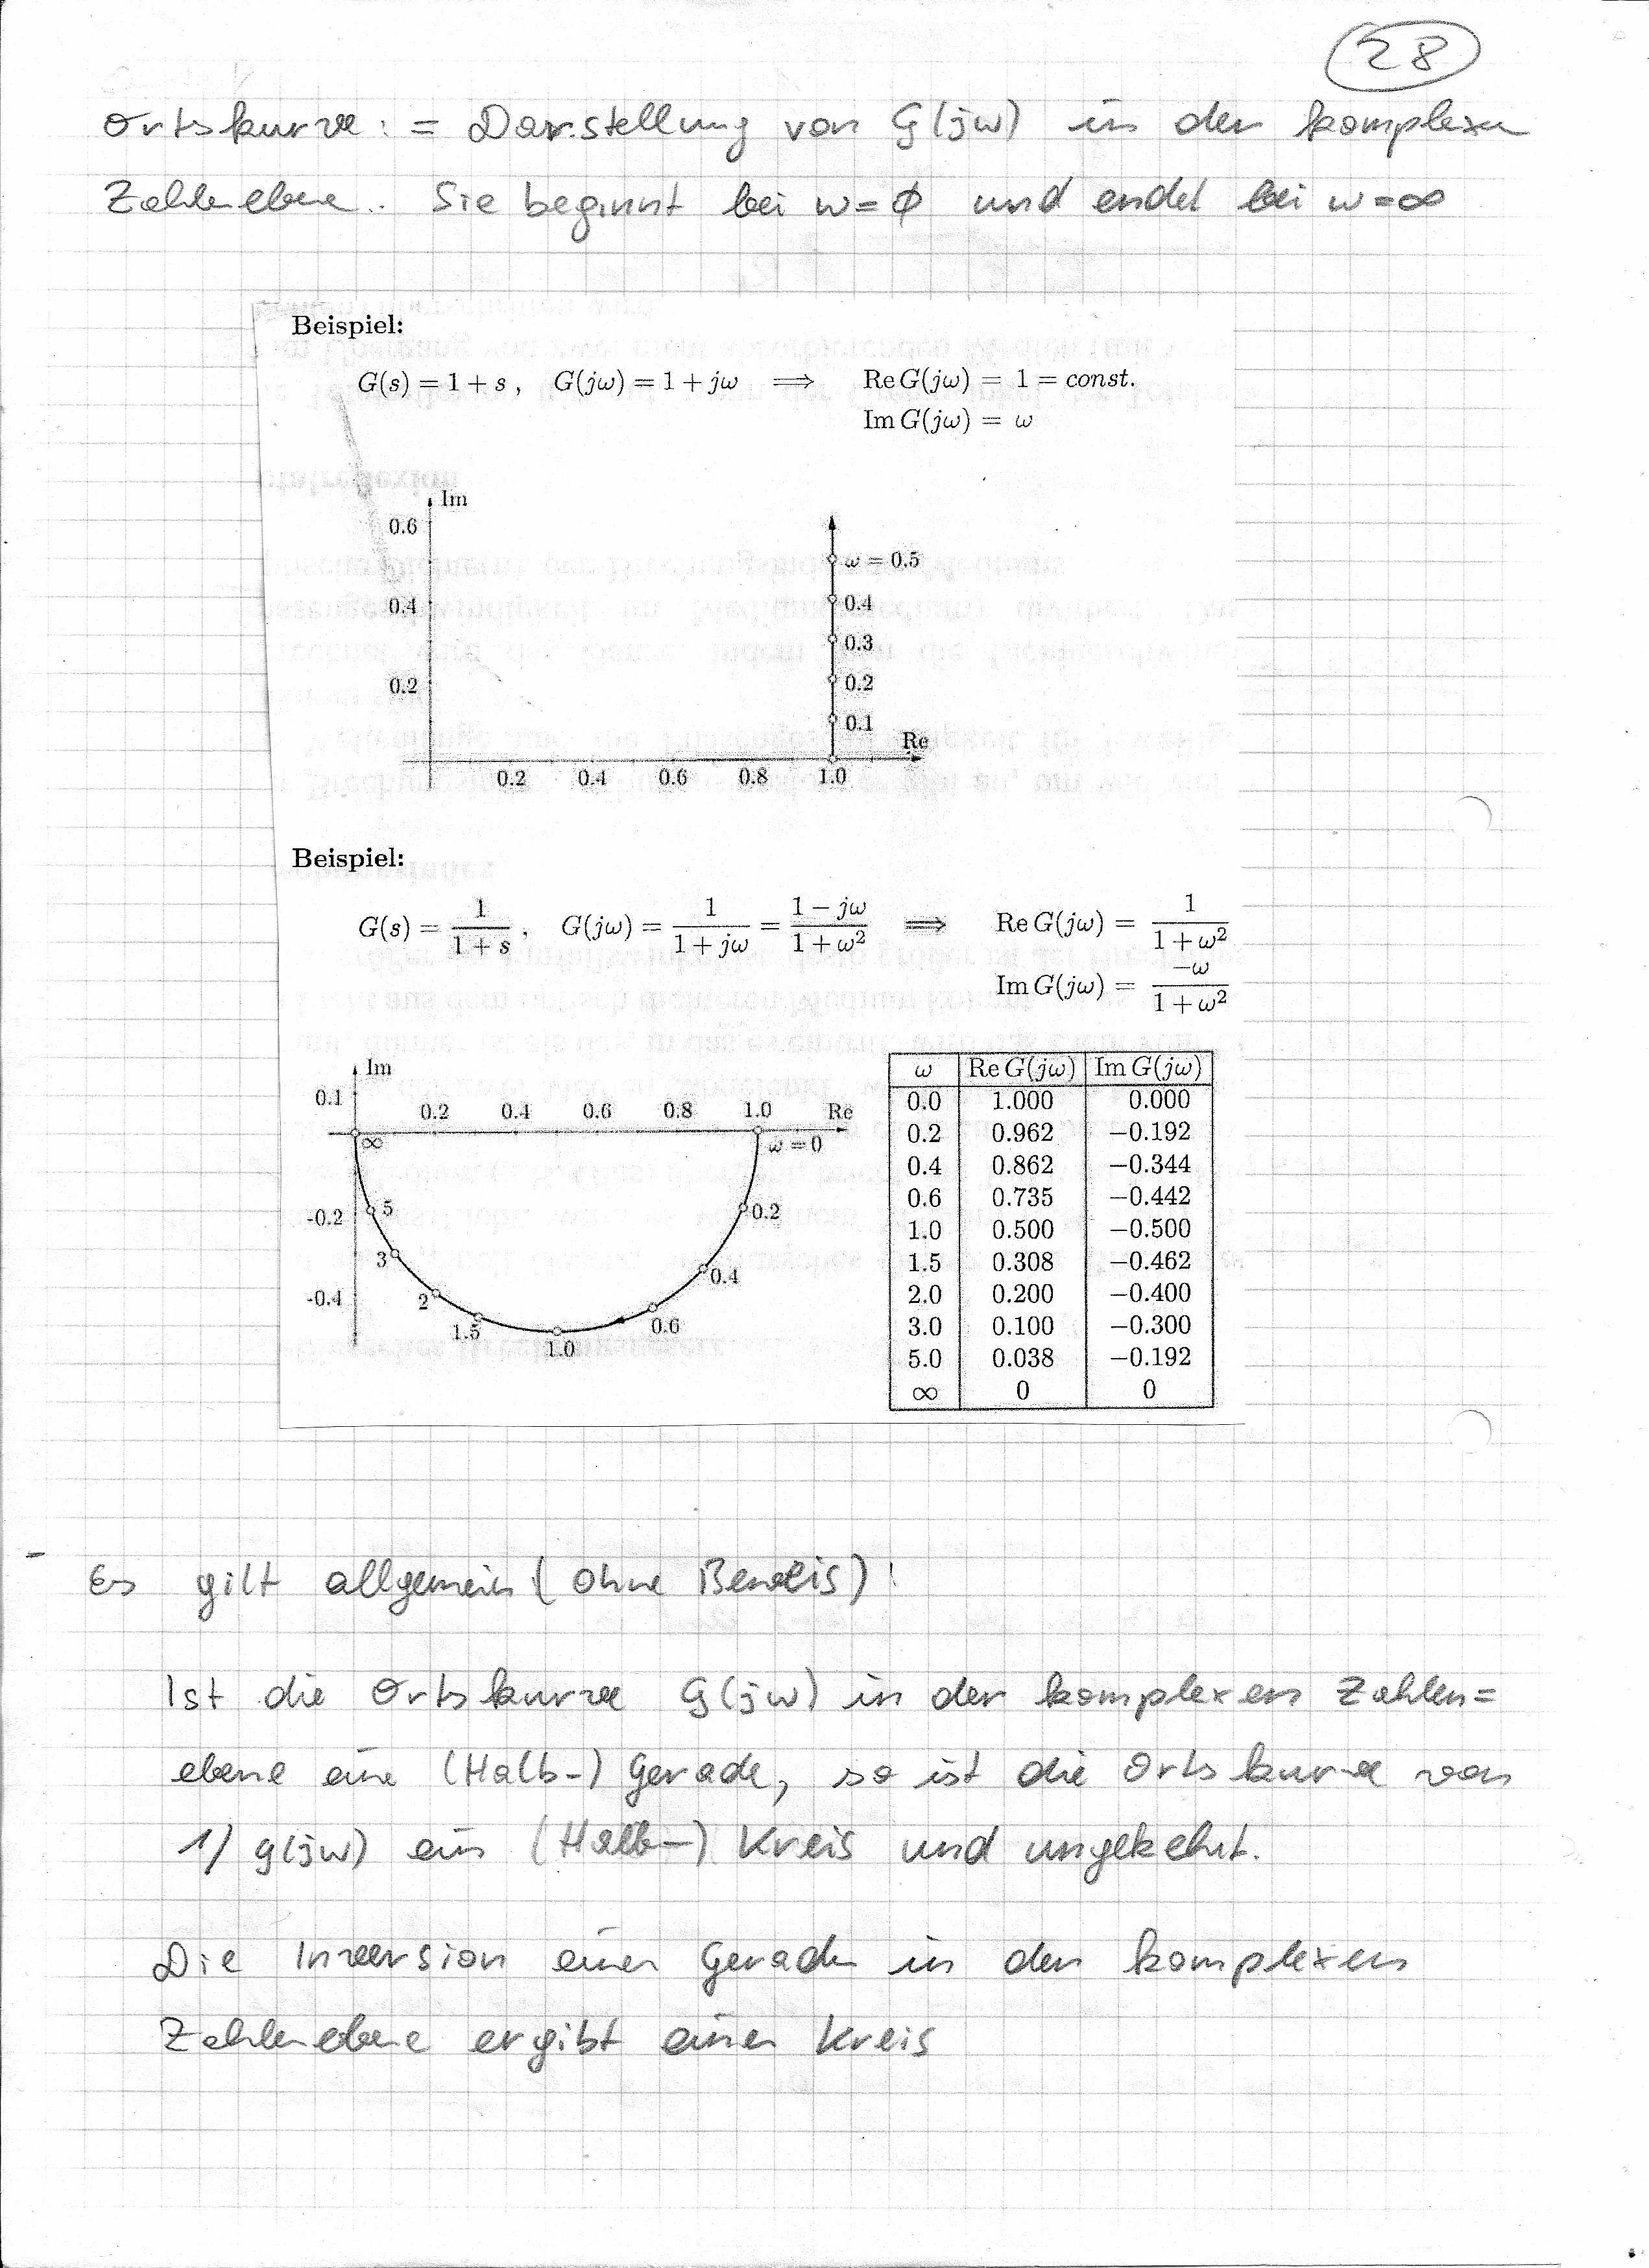 28
Ortskurve := Darstellung von G(jω) in der komplexen
Zahlenebene. Sie beginnt bei ω=0 und endet bei ω=∞
Beispiel:
G(s) = 1 + s , G(jω) = 1 + jω ⟹ Re G(jω) = 1 = const.
Im G(jω) = ω
Im
0.6
ω = 0.5
0.4 0.4
0.3
0.2 0.2
0.1
Re
0.2 0.4 0.6 0.8 1.0
Beispiel:
G(s) = 1/(1 + s) , G(jω) = 1/(1 + jω) = (1 − jω)/(1 + ω²) ⟹ Re G(jω) = 1/(1 + ω²)
Im G(jω) = −ω/(1 + ω²)
Im
0.1 0.2 0.4 0.6 0.8 1.0 Re
∞ ω = 0
-0.2 5 0.2
3 0.4
-0.4 2
1.5 0.6
1.0
ω Re G(jω) Im G(jω)
0.0 1.000 0.000
0.2 0.962 −0.192
0.4 0.862 −0.344
0.6 0.735 −0.442
1.0 0.500 −0.500
1.5 0.308 −0.462
2.0 0.200 −0.400
3.0 0.100 −0.300
5.0 0.038 −0.192
∞ 0 0
Es gilt allgemein (ohne Beweis)!
Ist die Ortskurve G(jω) in der komplexen Zahlen=
ebene eine (Halb-) Gerade, so ist die Ortskurve von
1/G(jω) ein (Halb-) Kreis und umgekehrt.
Die Inversion einer Geraden in der komplexen
Zahlenebene ergibt einen Kreis